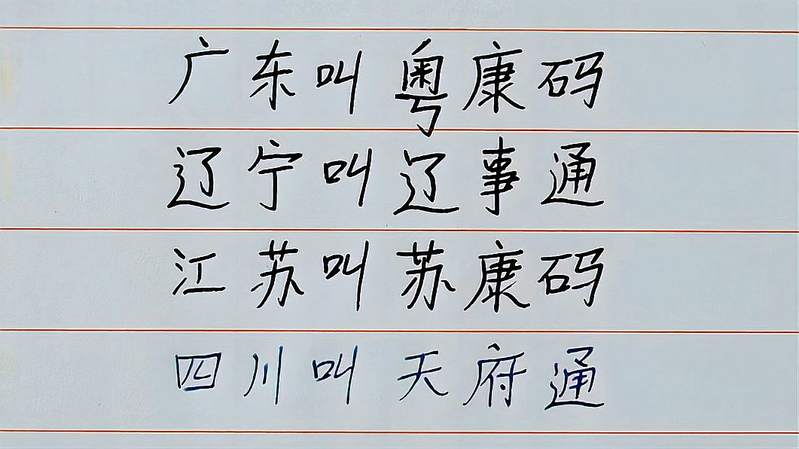 广东叫粤康码
辽宁叫辽事通
江苏叫苏康码
四川叫天府通